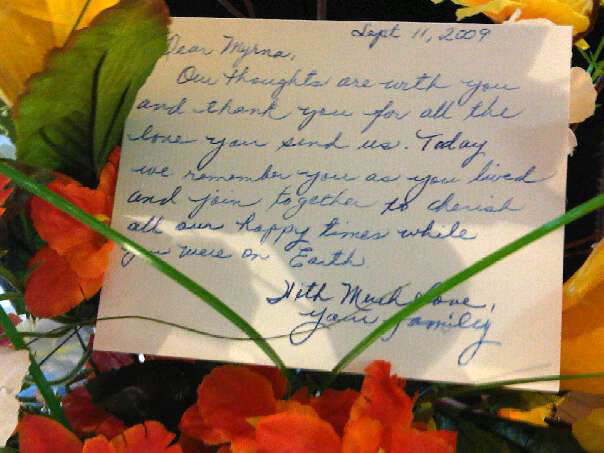 Sept 11, 2009
Dear Myrna,
Our thoughts are with you
and thank you for all the
love you send us. Today
we remember you as you lived
and join together to cherish
all our happy times while
you were on Earth.
With Much Love,
Your Family